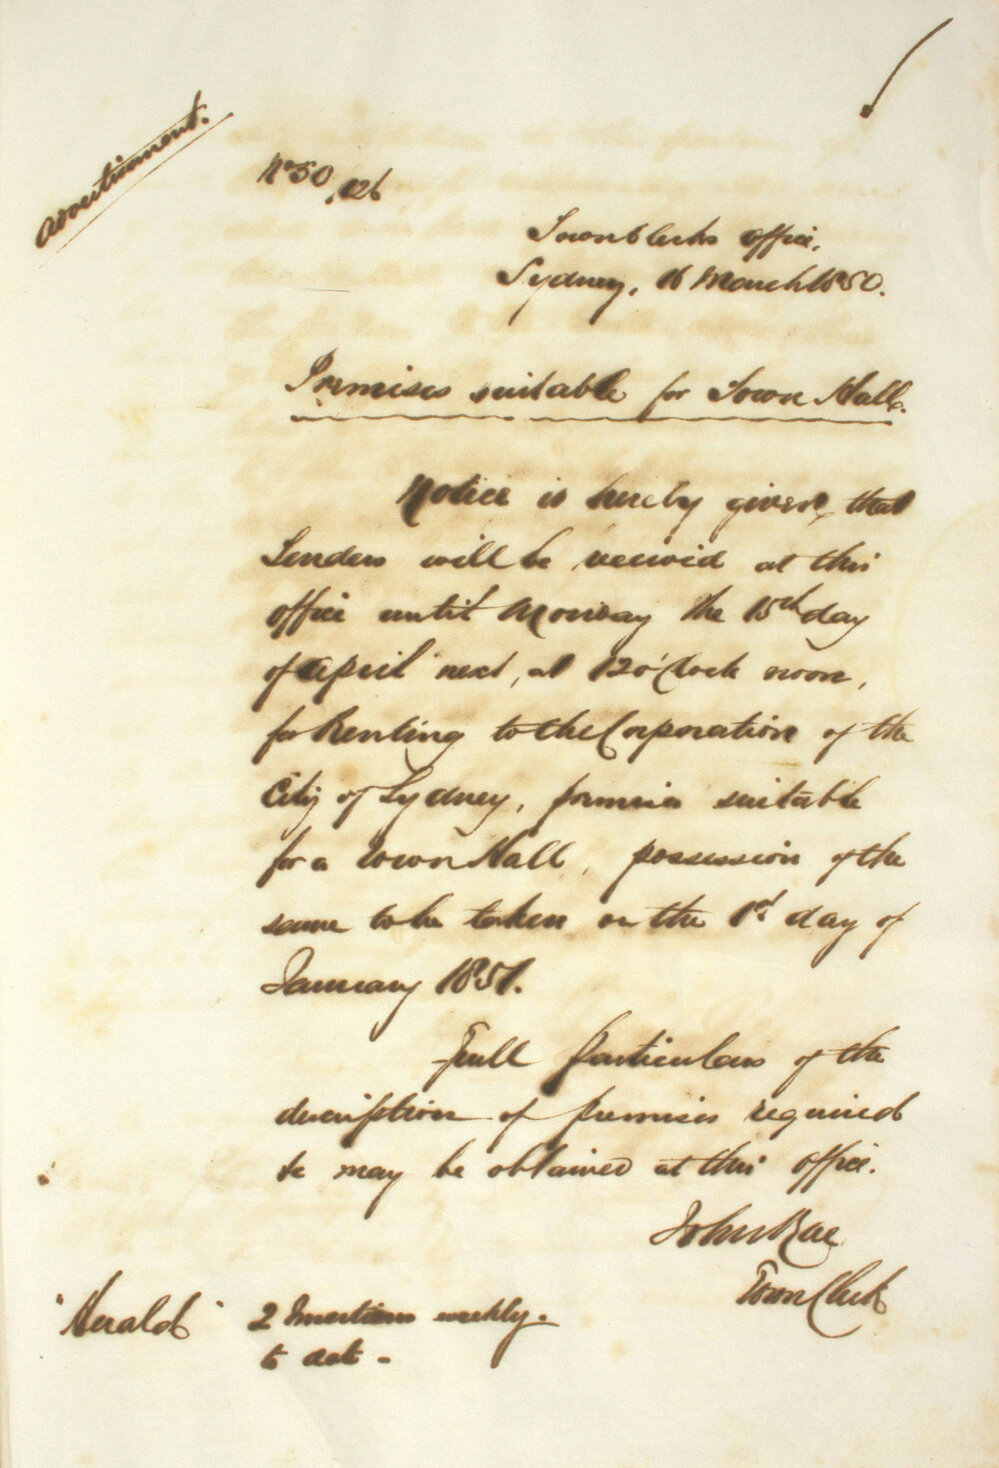 Advertisement.
No 50/126
Town Clerks Office,
Sydney, 16 March 1850.
Premises suitable for Town Hall.
Notice is hereby given, that
Tenders will be received at this
Office until Monday the 15th day
of April next, at 12 o'Clock noon,
for Renting to the Corporation of the
City of Sydney, premises suitable
for a Town Hall, possession of the
same to be taken on the 1st day of
January 1851.
Full particulars of the
description of premises required
&c may be obtained at this office.
John Rae
Town Clerk
"Herald" 2 Insertions weekly.
to date -